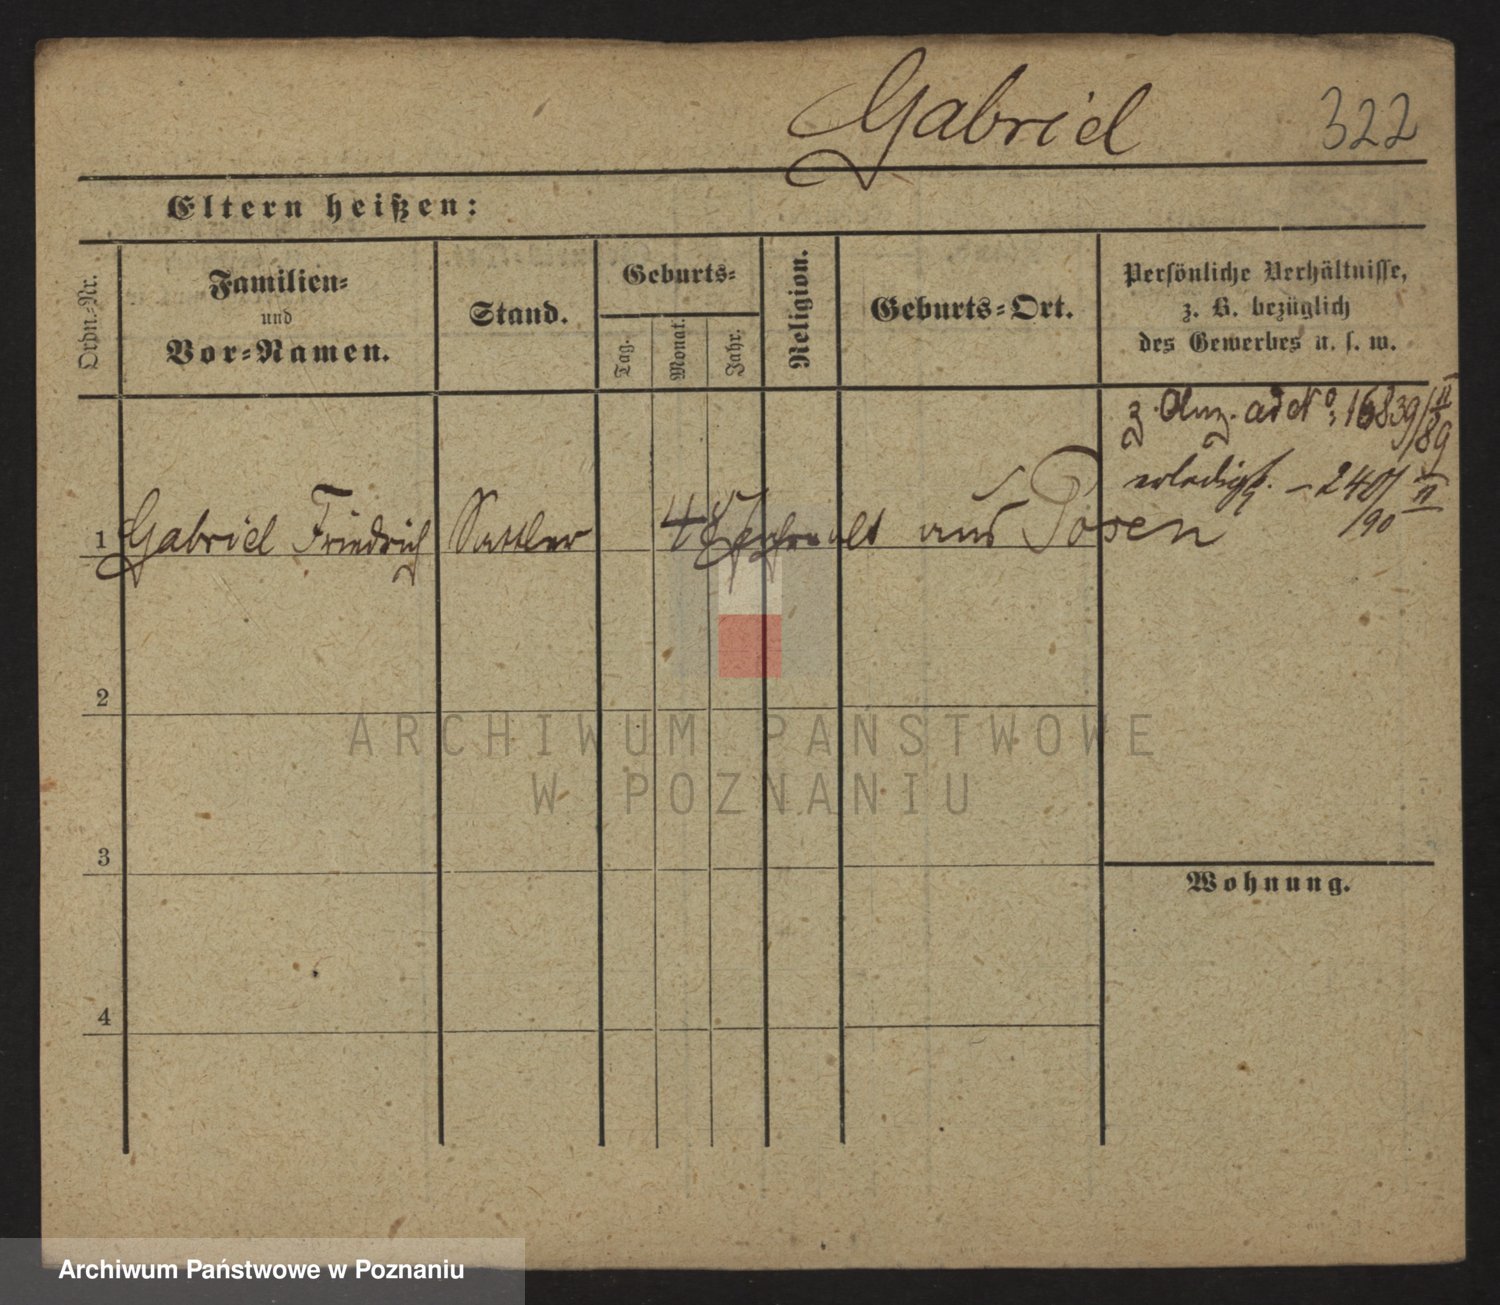 Gabriel 322
Eltern heißen:
Ordn.-Nr.
Familien-
und
Vor-Namen.
Stand.
Geburts-
Tag.
Monat.
Jahr.
Religion.
Geburts-Ort.
Persönliche Verhältnisse,
z. B. bezüglich
des Gewerbes u. s. w.
z. Anz. ad No: 16839/II 89
erledigt. – 2401 II/90
1 Gabriel Friedrich Sattler Jahre alt aus Posen
2
3
4
Wohnung.
ARCHIWUM PAŃSTWOWE
W POZNANIU
Archiwum Państwowe w Poznaniu